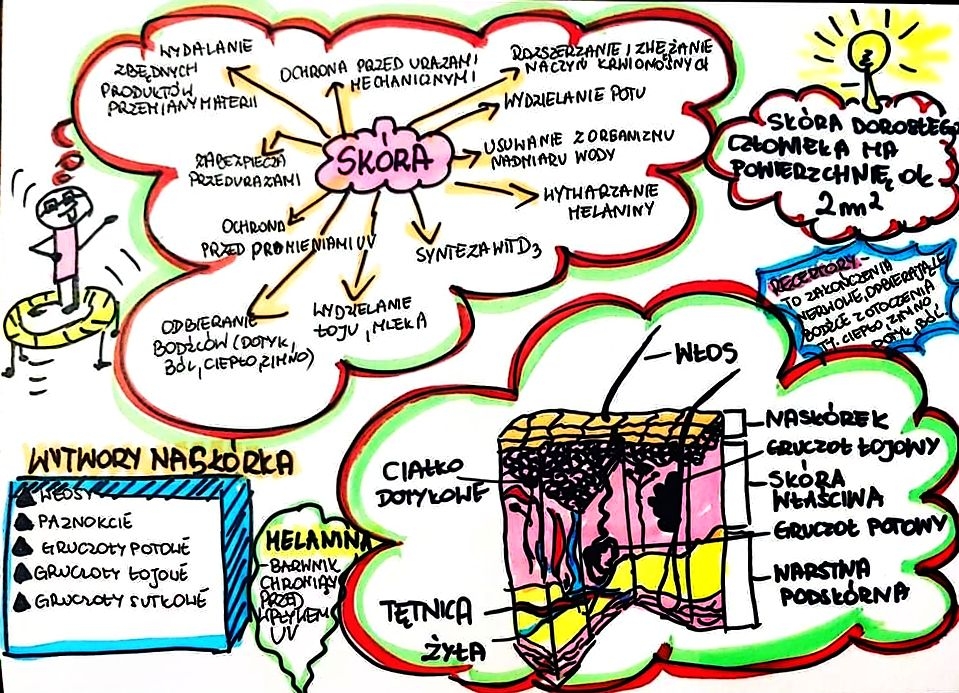 WYDALANIE
ZBĘDNYCH
PRODUKTÓW
PRZEMIANY MATERII
OCHRONA PRZED URAZAMI
MECHANICZNYMI
ROZSZERZANIE I ZWĘŻANIE
NACZYŃ KRWIONOŚNYCH
WYDZIELANIE POTU
USUWANIE Z ORGANIZMU
NADMIARU WODY
WYTWARZANIE
MELANINY
SYNTEZA WIT D3
WYDZIELANIE
ŁOJU, MLEKA
ODBIERANIE
BODŹCÓW (DOTYK,
BÓL, CIEPŁO, ZIMNO)
OCHRONA
PRZED PROMIENIAMI UV
ZABEZPIECZA
PRZED URAZAMI
SKÓRA
SKÓRA DOROSŁEGO
CZŁOWIEKA MA
POWIERZCHNIĘ OK
2m²
RECEPTORY -
TO ZAKOŃCZENIA
NERWOWE, ODBIERAJĄCE
BODŹCE Z OTOCZENIA
TJ. CIEPŁO, ZIMNO
DOTYK, BÓL.
WYTWORY NASKÓRKA
WŁOSY
PAZNOKCIE
GRUCZOŁY POTOWE
GRUCZOŁY ŁOJOWE
GRUCZOŁY SUTKOWE
MELANINA
- BARWNIK
CHRONIĄCY
PRZED
WPŁYWEM
UV
WŁOS
NASKÓREK
GRUCZOŁ ŁOJOWY
SKÓRA
WŁAŚCIWA
GRUCZOŁ POTOWY
WARSTWA
PODSKÓRNA
CIAŁKO
DOTYKOWE
TĘTNICA
ŻYŁA